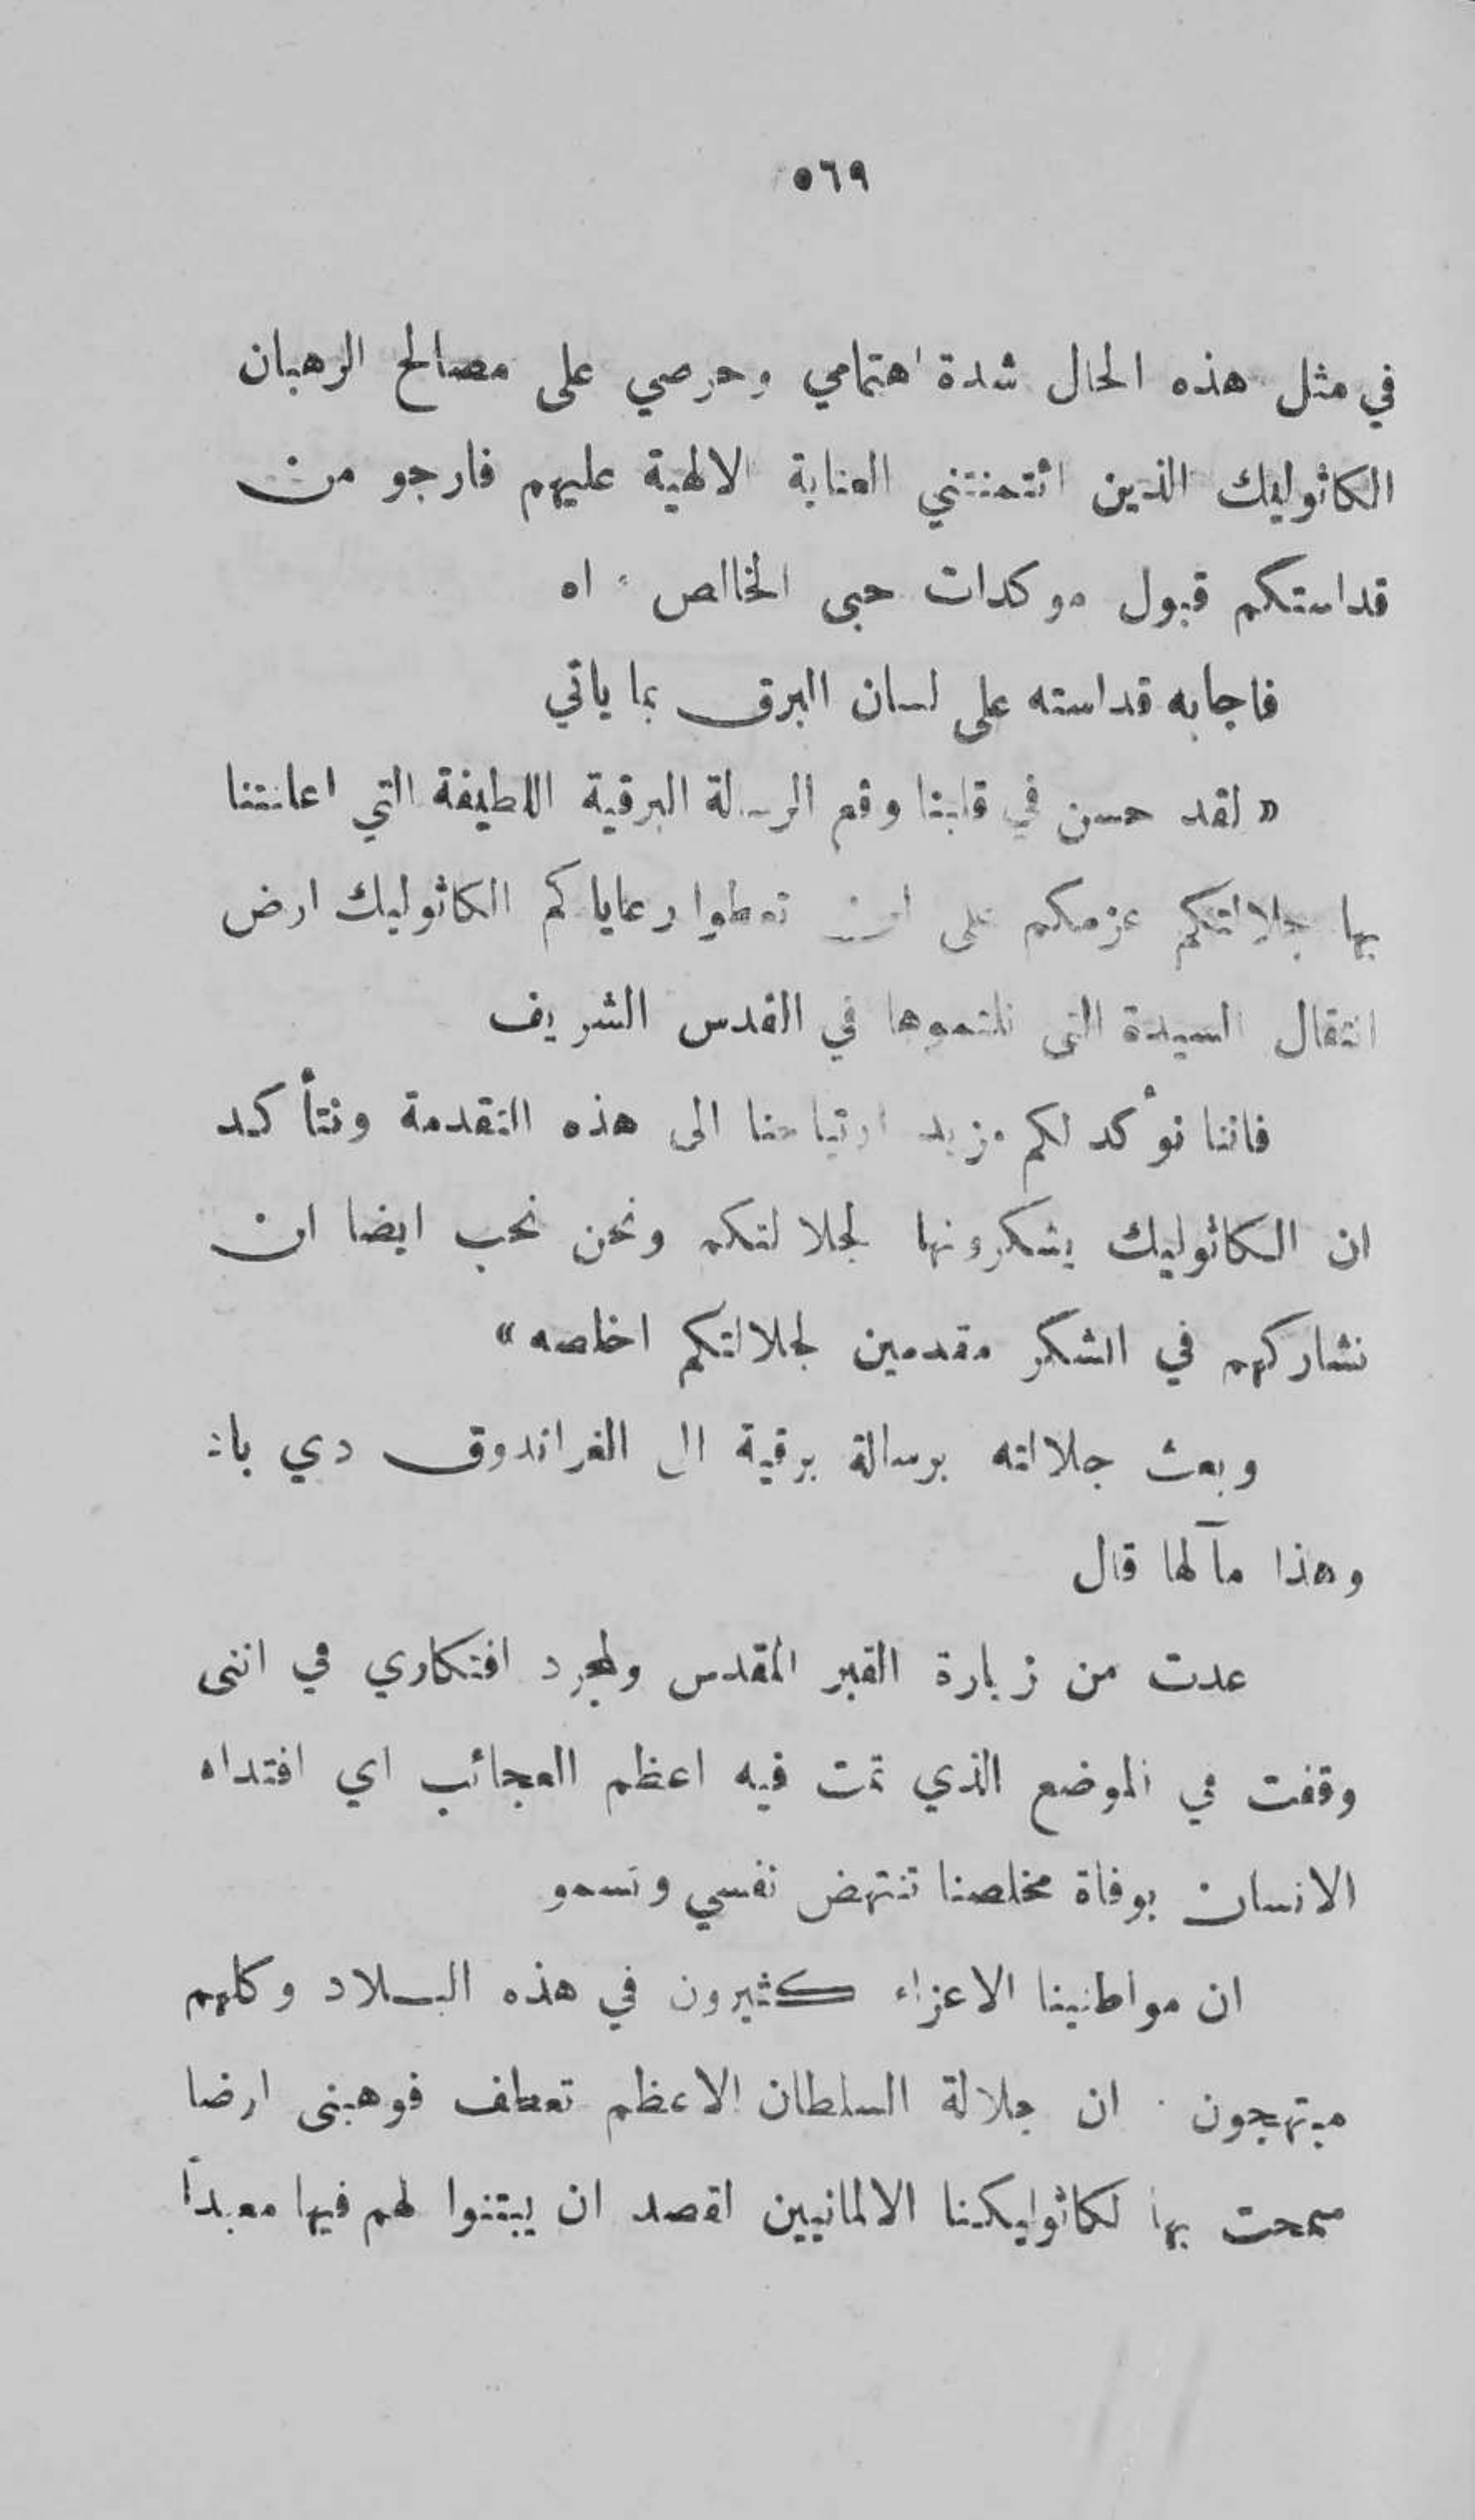 ٥٦٩
في مثل هذه الحال شدة اهتمامي وحرصي على مصالح الرهبان
الكاثوليك الذين ائتمنتني العناية الالهية عليهم فارجو من
قداستكم قبول موكدات حبى الخالص . اه
فاجابه قداسته على لسان البرق بما ياتي
« لقد حسن في قلبنا وقع الرسالة البرقية اللطيفة التي اعلنتنا
بها جلالتكم عزمكم على ان تعطوا رعاياكم الكاثوليك ارض
انتقال السيدة التى نلتموها في القدس الشريف
فاننا نؤكد لكم مزيد ارتياحنا الى هذه التقدمة ونتأكد
ان الكاثوليك يشكرونها لجلالتكم ونحن نحب ايضا ان
نشاركهم في الشكر مقدمين لجلالتكم اخلصه »
وبعث جلالته برسالة برقية الى الغراندوق دي باد
وهذا مآلها قال
عدت من زيارة القبر المقدس ولمجرد افتكاري في اننى
وقفت في الموضع الذي تمت فيه اعظم العجائب اي افتداء
الانسان بوفاة مخلصنا تنتهض نفسي وتسمو
ان مواطنينا الاعزاء كثيرون في هذه البلاد وكلهم
مبتهجون . ان جلالة السلطان الاعظم تعطف فوهبنى ارضا
سمحت بها لكاثوليكنا الالمانيين لقصد ان يبتنوا لهم فيها معبداً